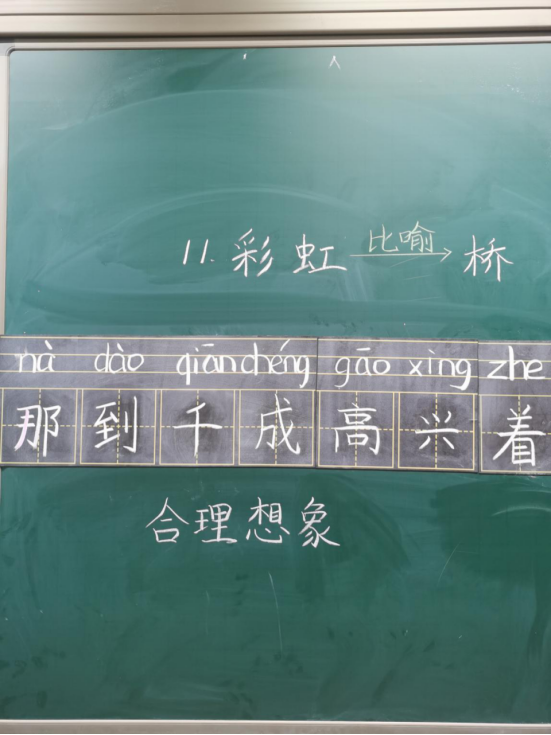 11. 彩虹 比喻 桥
nà dào qiān chéng gāo xìng zhe
那到千成高兴着
合理想象